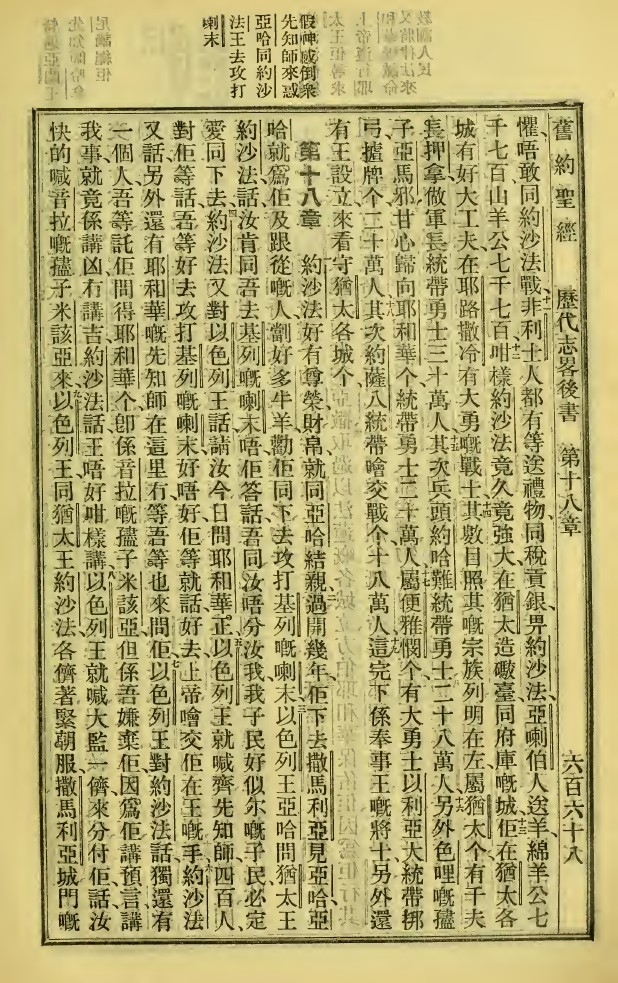 假神感倒衆
先知師來惑
亞哈同約沙
法王去攻打
喇末
舊約聖經 歷代志畧後書 第十八章 六百六十八
懼唔敢同約沙法戰非利士人都有等送禮物同稅貢銀畀約沙法亞喇伯人送羊綿羊公七
千七百山羊公七千七百咁樣約沙法竟久竟強大在猶太造礮臺同府庫嘅城佢在猶太各
城有好大工夫在耶路撒冷有大勇嘅戰士其數目照其嘅宗族列明在左屬猶太个有千夫
長押拿做軍長統帶勇士三十萬人其次兵頭約哈難統帶勇士二十八萬人另外色哩嘅孻
子亞馬邪甘心歸向耶和華个統帶勇士二十萬人屬便雅憫个有大勇士以利亞大統帶揶
弓攎牌个二十萬人其次約薩八統帶噲交戰个十八萬人這完下係奉事王嘅將士另外還
有王設立來看守猶太各城个
第十八章 約沙法好有尊榮財帛就同亞哈結親過開幾年佢下去撒馬利亞見亞哈亞
哈就爲佢及跟從嘅人劏好多牛羊勸佢同下去攻打基列嘅喇末以色列王亞哈問猶太王
約沙法話汝肯同吾去基列嘅喇末唔佢答話吾同汝唔分汝我我子民好似尔嘅子民必定
愛同下去約沙法又對以色列王話請汝今日問耶和華正以色列王就喊齊先知師四百人
對佢等話吾等好去攻打基列嘅喇末好唔好佢等就話好去上帝噲交佢在王嘅手約沙法
又話另外還有耶和華嘅先知師在這里冇等吾等也來問佢以色列王對約沙法話獨還有
一個人吾等託佢問得耶和華个卽係音拉嘅孻子米該亞但係吾嫌棄佢因爲佢講預言講
我事就竟係講凶冇講吉約沙法話王唔好咁樣講以色列王就喊大監一儕來分付佢話汝
快的喊音拉嘅孻子米該亞來以色列王同猶太王約沙法各儕著緊朝服撒馬利亞城門嘅